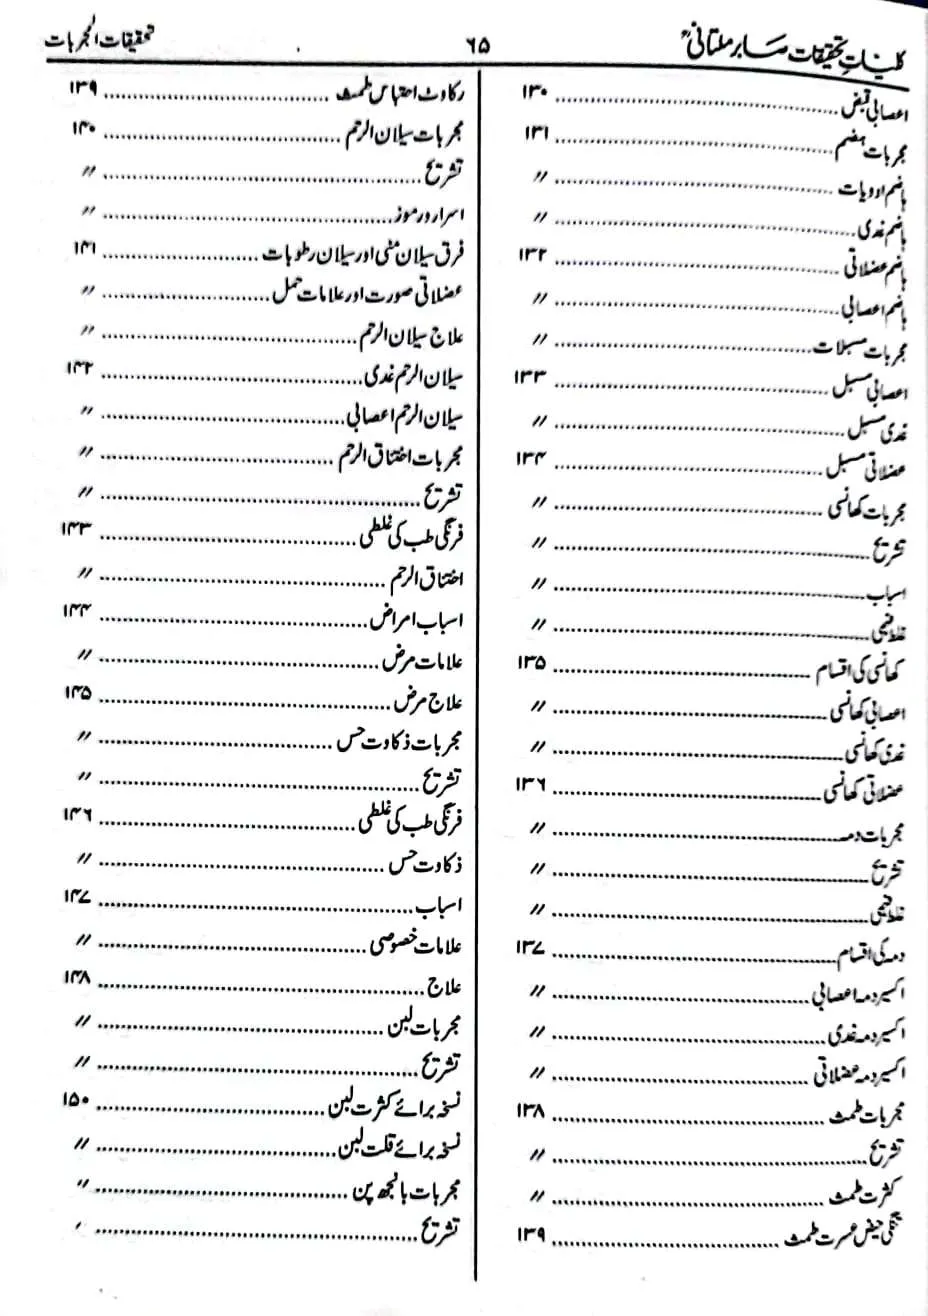 کلیات تحقیقات صابر ملتانیؒ ۶۵ تحقیقات المجربات
اعصابی قبض ........ ۱۳۰
مجربات ہضم ........ ۱۳۱
ہاضم ادویات ........ //
ہاضم غدی ........ //
ہاضم عضلاتی ........ ۱۳۲
ہاضم اعصابی ........ //
مجربات مسہلات ........ //
اعصابی مسہل ........ ۱۳۳
غدی مسہل ........ //
عضلاتی مسہل ........ ۱۳۴
مجربات کھانسی ........ //
تشریح ........ //
اسباب ........ //
غلط فہمی ........ //
کھانسی کی اقسام ........ ۱۳۵
اعصابی کھانسی ........ //
غدی کھانسی ........ //
عضلاتی کھانسی ........ ۱۳۶
مجربات دمہ ........ //
تشریح ........ //
غلط فہمی ........ //
دمہ کی اقسام ........ ۱۳۷
اکسیر دمہ اعصابی ........ //
اکسیر دمہ غدی ........ //
اکسیر دمہ عضلاتی ........ //
مجربات طمث ........ ۱۳۸
تشریح ........ //
کثرت طمث ........ //
تنگی حیض عسرت طمث ........ ۱۳۹
رکاوٹ احتباس طمث ........ ۱۳۹
مجربات سیلان الرحم ........ ۱۴۰
تشریح ........ //
اسرار و رموز ........ //
فرق سیلان منی اور سیلان رطوبات ........ ۱۴۱
عضلاتی صورت اور علامات حمل ........ //
علاج سیلان الرحم ........ //
سیلان الرحم غدی ........ ۱۴۲
سیلان الرحم اعصابی ........ //
مجربات اختناق الرحم ........ //
تشریح ........ //
فرنگی طب کی غلطی ........ ۱۴۳
اختناق الرحم ........ //
اسباب امراض ........ ۱۴۴
علامات مرض ........ //
علاج مرض ........ ۱۴۵
مجربات ذکاوت حس ........ //
تشریح ........ //
فرنگی طب کی غلطی ........ ۱۴۶
ذکاوت حس ........ //
اسباب ........ ۱۴۷
علامات خصوصی ........ //
علاج ........ ۱۴۸
مجربات لبن ........ //
تشریح ........ //
نسخہ برائے کثرت لبن ........ ۱۵۰
نسخہ برائے قلت لبن ........ //
مجربات بانجھ پن ........ //
تشریح ........ //